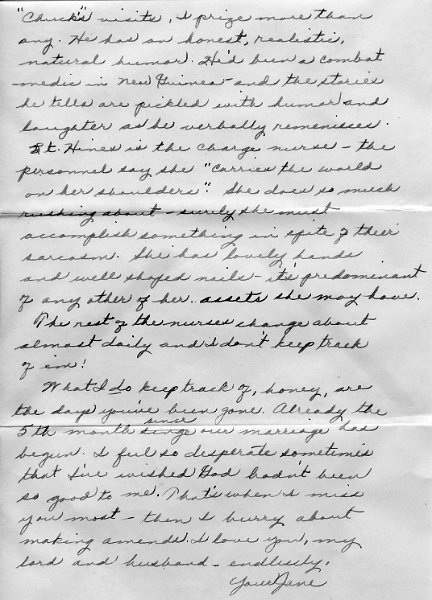 "Chuck's" visits, I prize more than
any. He has an honest, realistic,
natural humor. He'd been a combat
medic in New Guinea - and the stories
he tells are pickled with humor and
laughter as he verbally remenisses.
Lt. Hines is the charge nurse - the
personnel say she "carries the world
on her shoulders". She does so much
rushing about - surely she must
accomplish something in spite of their
sarcasm. She has lovely hands
and well shaped nails - it's predominant
of any other of her assets she may have.
The rest of the nurses change about
almost daily and I don't keep track
of 'em!
What I do keep track of, honey, are
the days you've been gone. Already the
5th month since our marriage has
begun. I feel so desperate sometimes
that I've wished God hadn't been
so good to me. That's when I miss
you most - then I hurry about
making amends. I love you, my
lord and husband - endlessly.
Your Jane